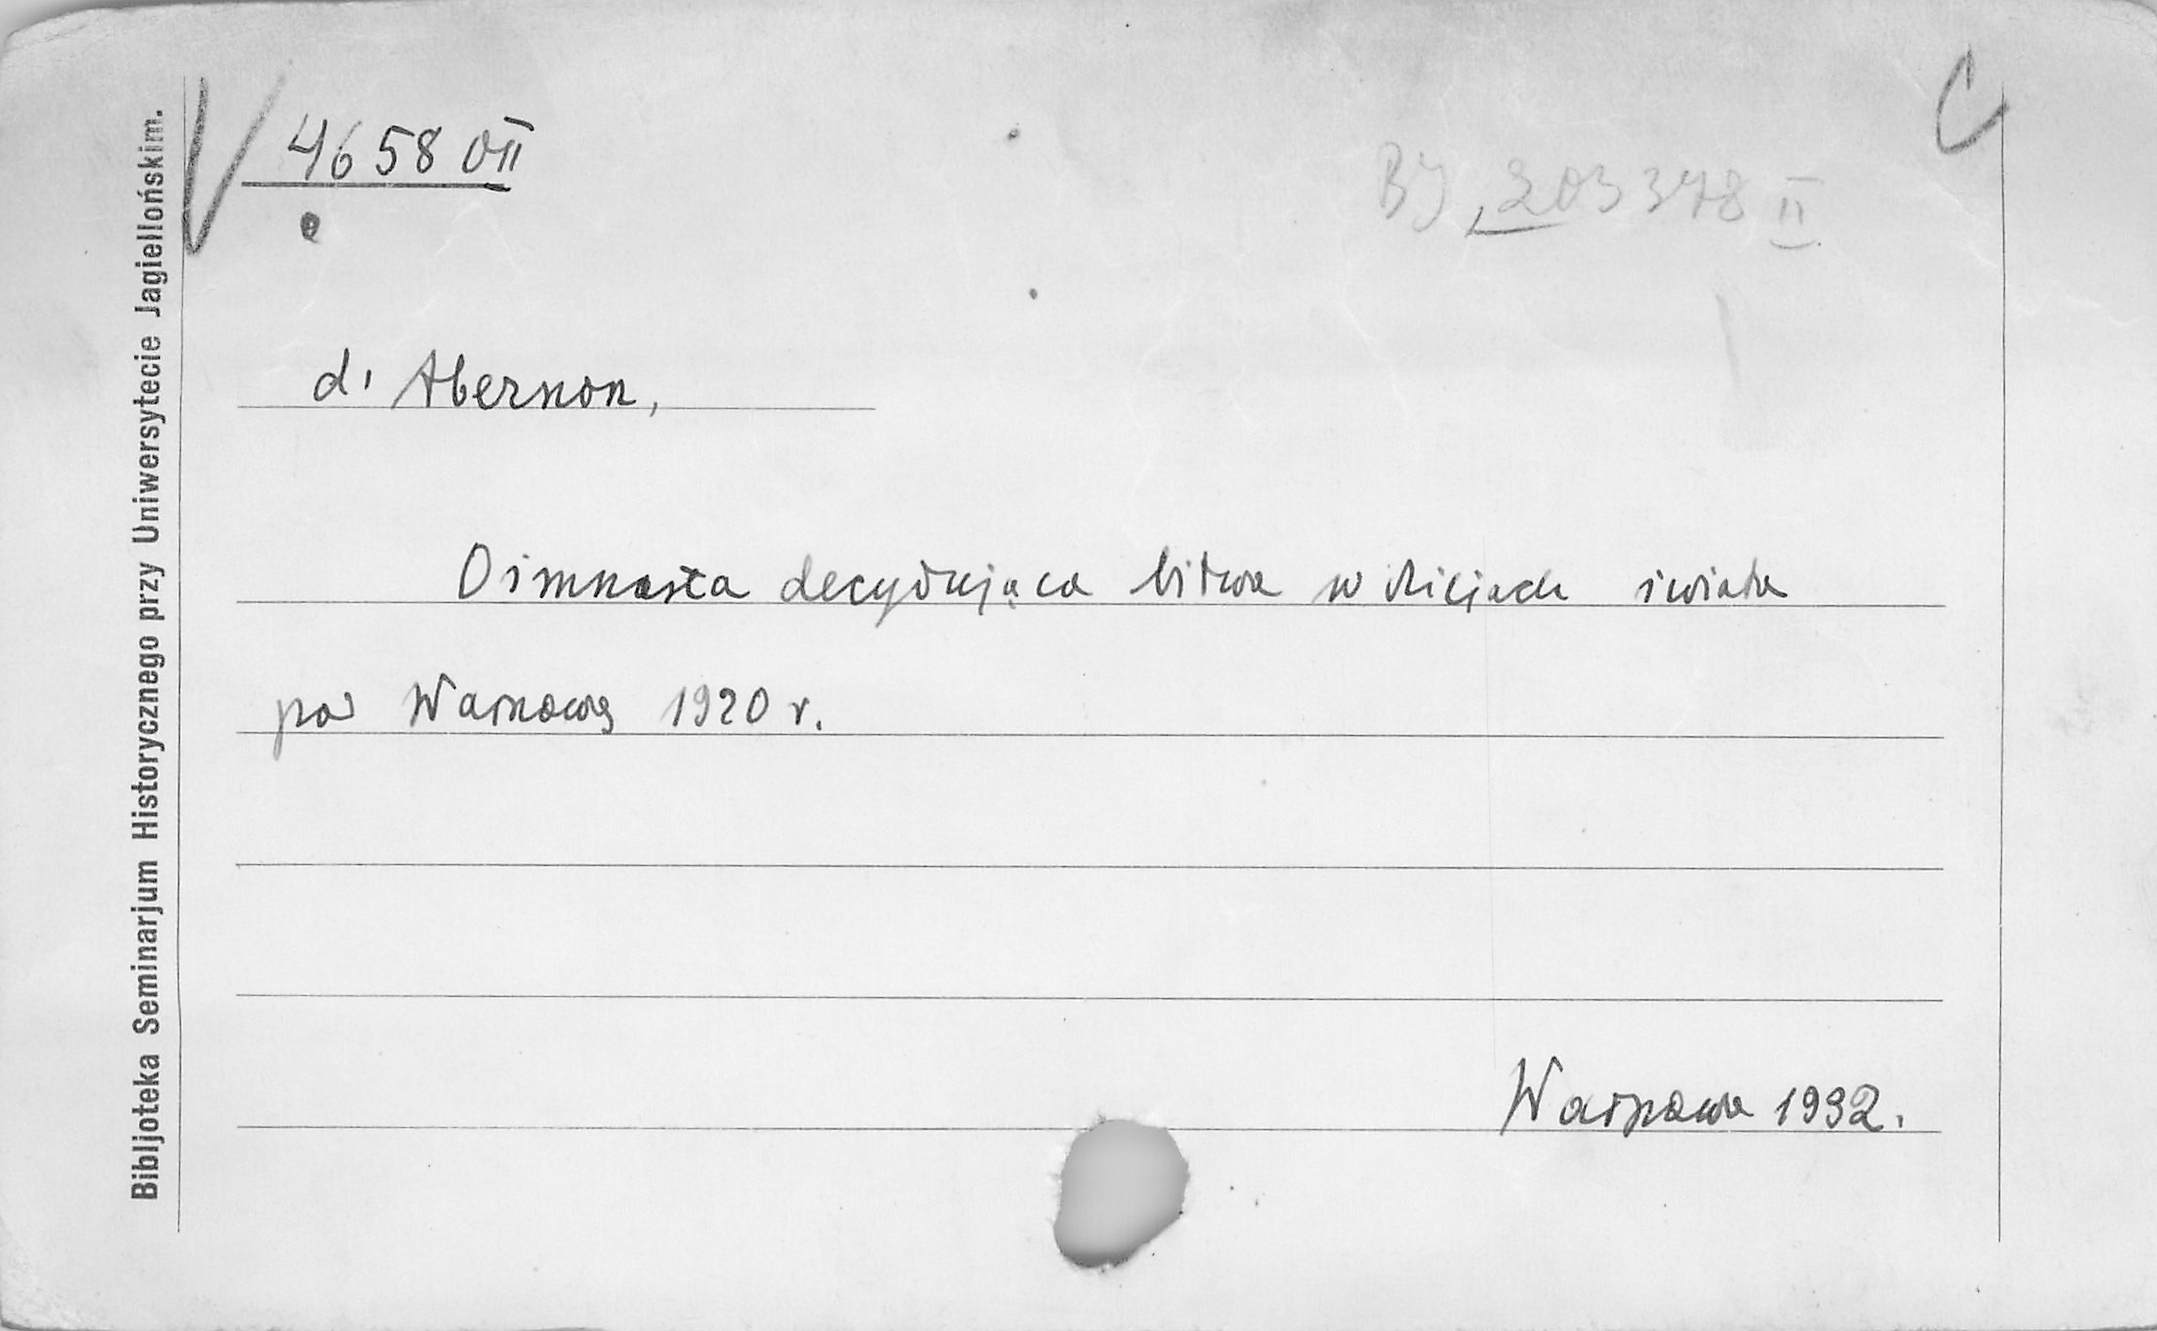 4658 OII
C
BJ 203378 II
d'Abernon,
Osimnasta decydująca bitwa w dziejach świata
pod Warszawą 1920 r.
Warszawa 1932.
Bibljoteka Seminarjum Historycznego przy Uniwersytecie Jagiellońskim.